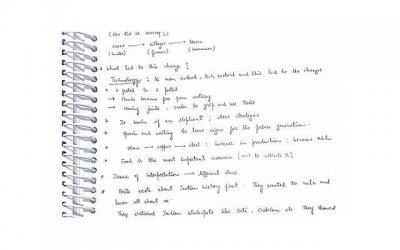 (How did it occur?)
caves → villages → towns
(hunter) (farmer) (consumer)
* What led to this change?
Technology : As man evolved, tech evolved and this led to the changes
* 4 footed to 2 footed
→ Made brains for from walking
→ Moving joints, easier to grip and use tools
* 3x brain of an elephant; more strategies
* Speech and writing to leave signs for the future generation.
* stone → copper → steel : increase in productions : became rich
* Food is the most important resource [used to cultivate it]
* Issue of interpretation → different views
* Brits wrote about Indian history first. They wanted to rule and
know all about us.
They criticised Indian viewpoints like Sati, Casteism etc. They showed